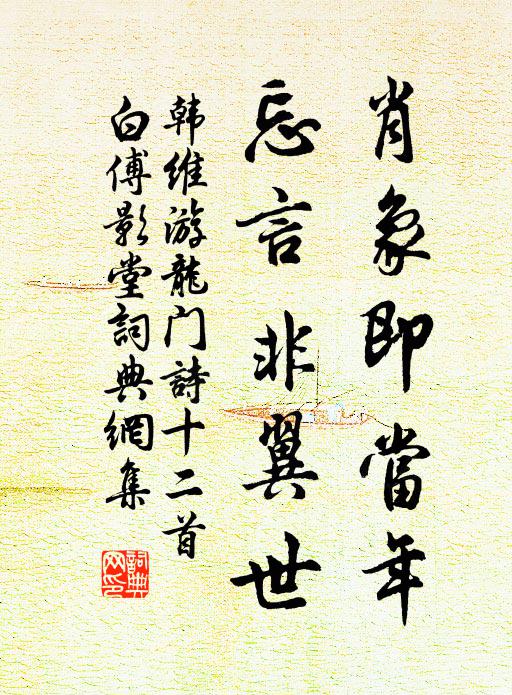 肖象即當年
忘言非翼世
韩維游龍门詩十二首
白傅影堂詞典網集
詞典
网印